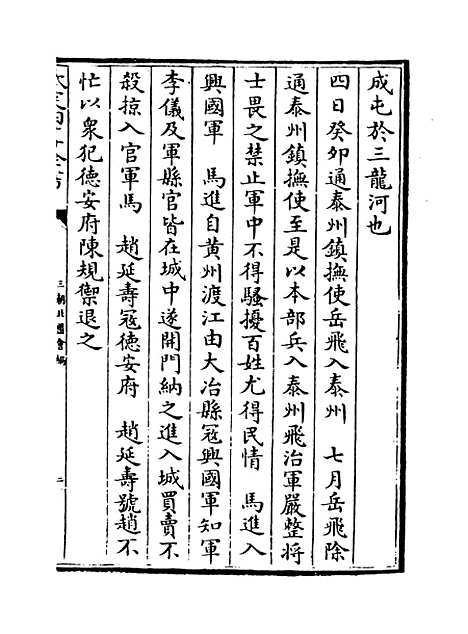 成屯於三龍河也
四日癸夘通泰州鎮撫使岳飛入泰州　七月岳飛除
通泰州鎮撫使至是以本部兵入泰州飛治軍嚴整將
士畏之禁止軍中不得騷擾百姓尤得民情　馬進入
興國軍　馬進自黄州渡江由大冶縣冦興國軍知軍
李儀及軍縣官皆在城中遂開門納之進入城買賣不
殺掠入官軍馬　趙延壽冦德安府　趙延壽號趙不
忙以衆犯德安府陳規禦退之
三朝北盟會編
二